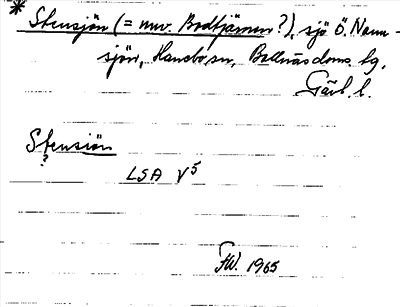 * Stensjön (= nuv. Bodtjärnen?), sjö Ö. Nann-
sjön, Hanebo sn, Bollnäs doms. hg,
Gävl. l.
Stensiön
?
LSA V5
FW. 1965